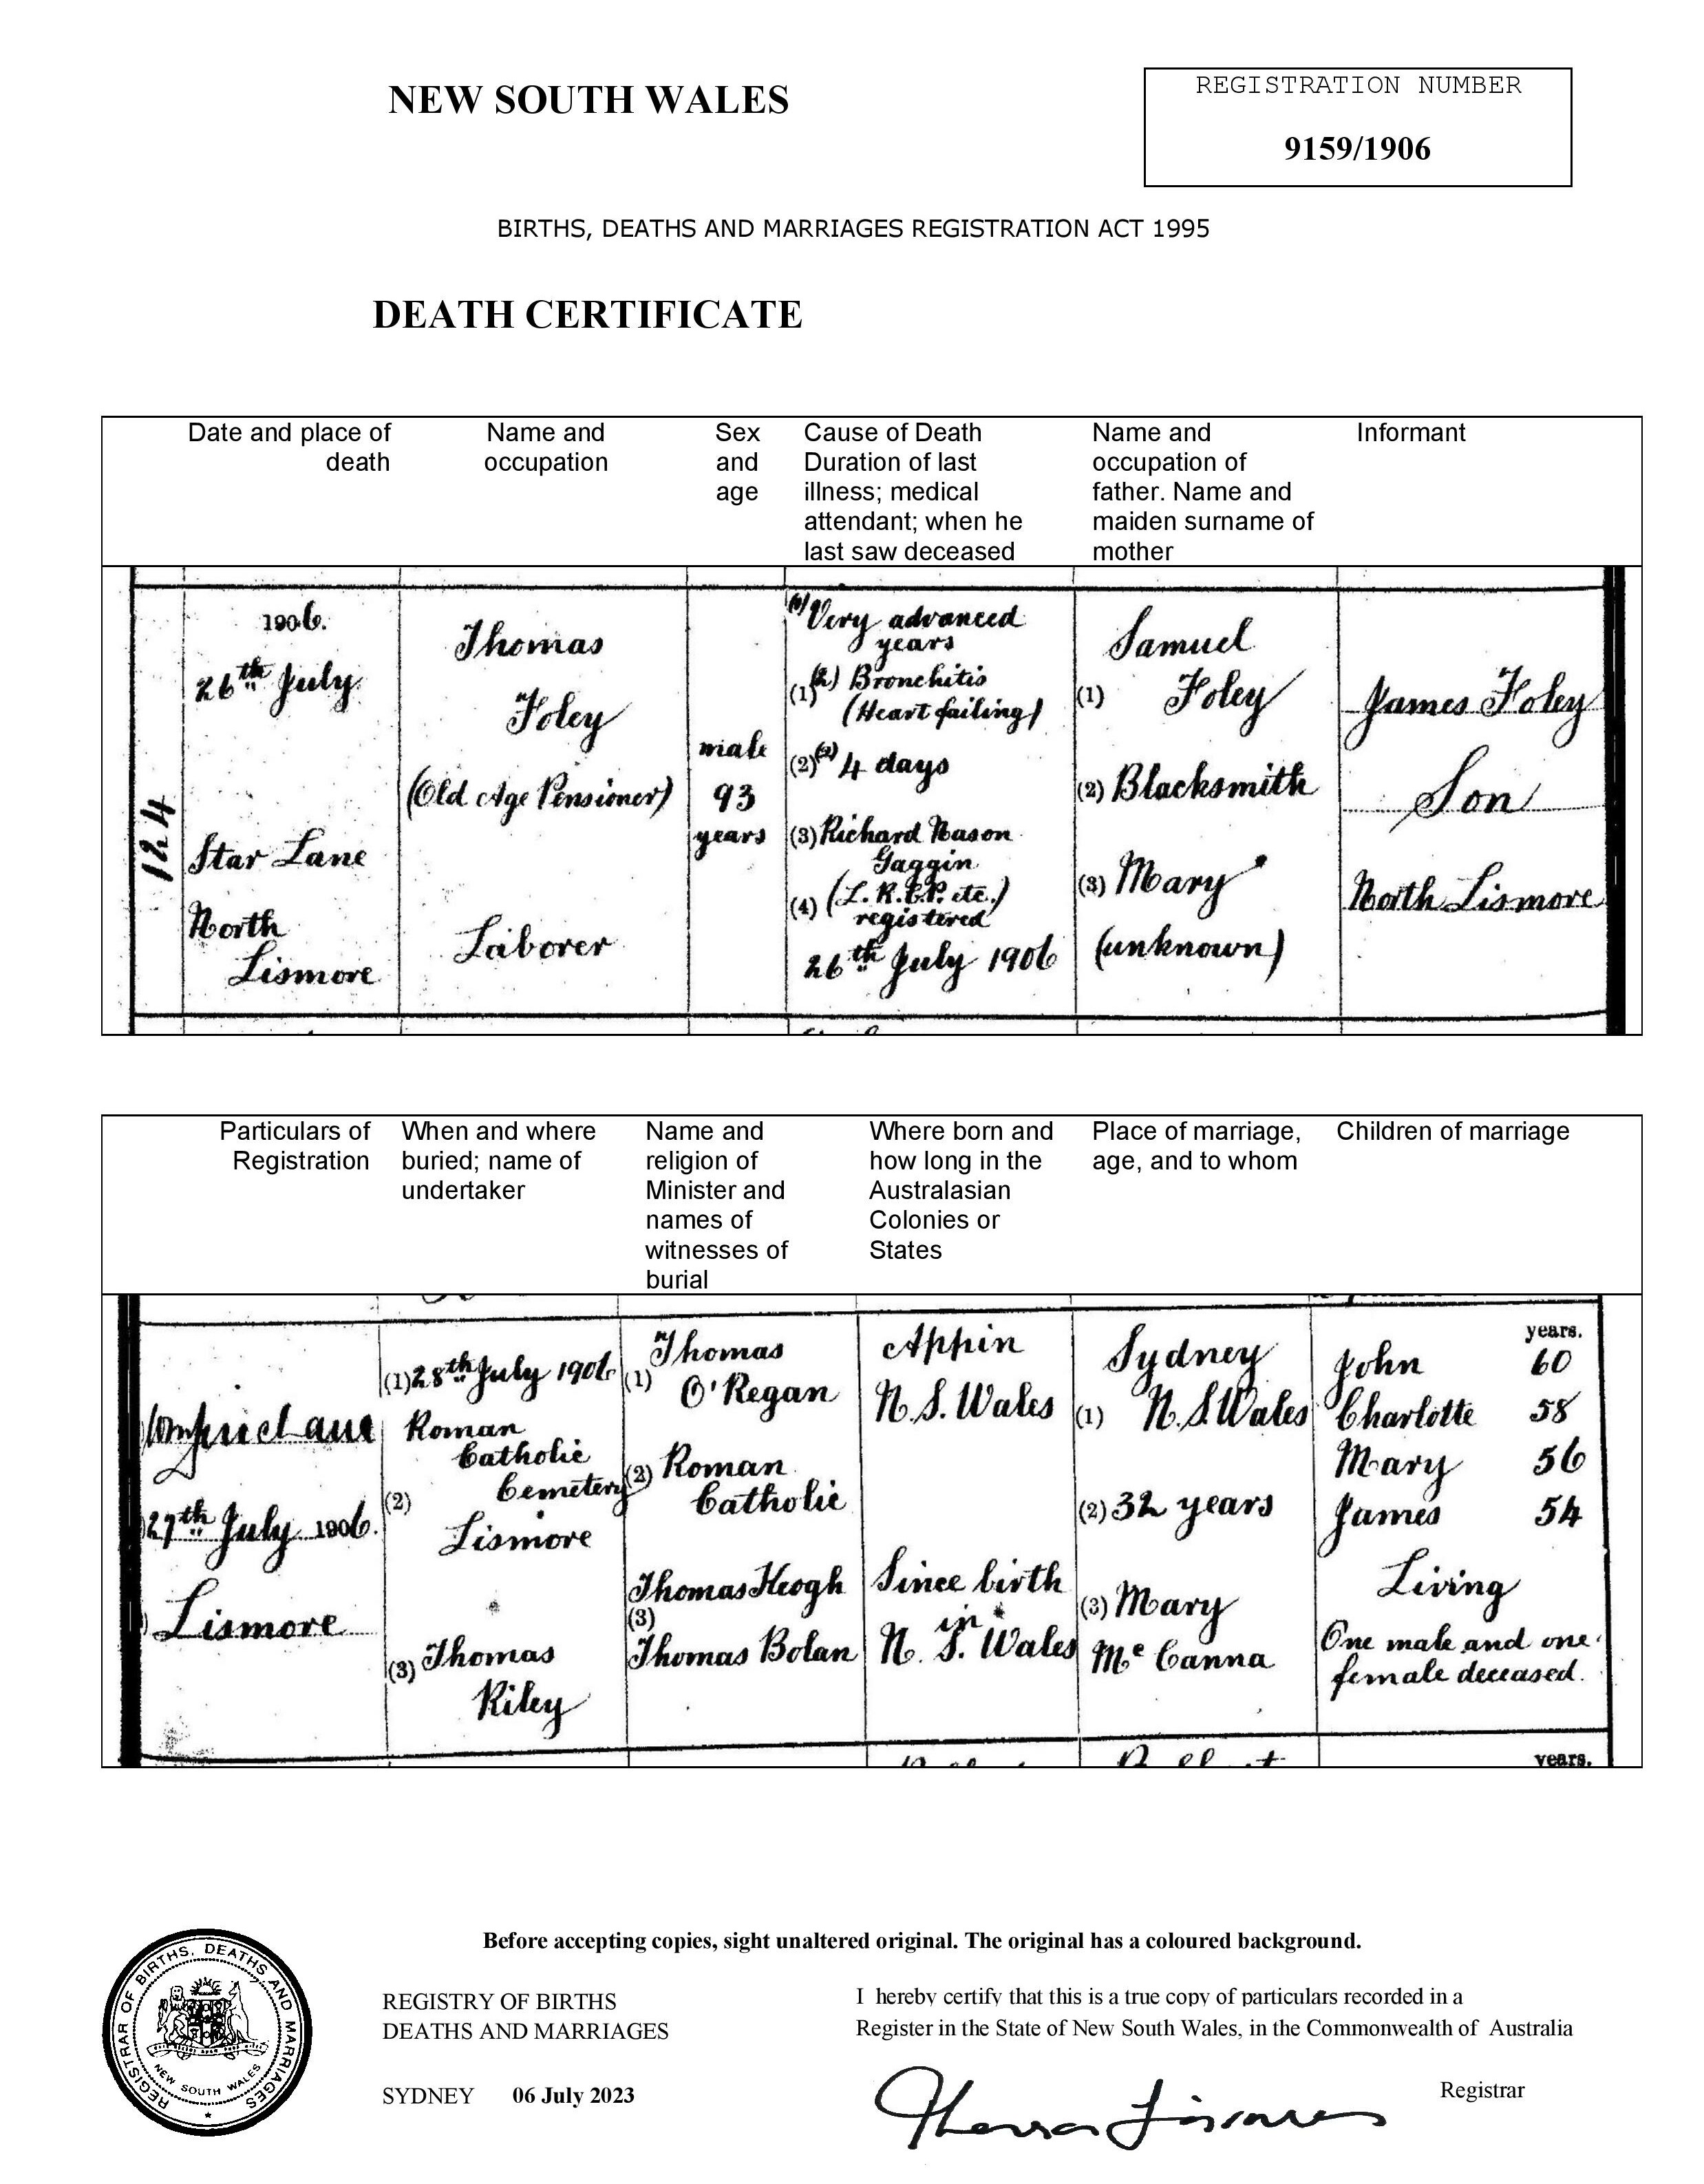 NEW SOUTH WALES
REGISTRATION NUMBER
9159/1906
BIRTHS, DEATHS AND MARRIAGES REGISTRATION ACT 1995
DEATH CERTIFICATE
Date and place of
death
Name and
occupation
Sex
and
age
Cause of Death
Duration of last
illness; medical
attendant; when he
last saw deceased
Name and
occupation of
father. Name and
maiden surname of
mother
Informant
124
1906.
26th July
Star Lane
North
Lismore
Thomas
Foley
(Old Age Pensioner)
Laborer
male
93
years
(1) Very advanced
years
(1) (2) Bronchitis
(Heart failing)
(2) (2) 4 days
(3) Richard Nason
Gaggin
(4) (L.R.C.P. etc.)
registered
26th July 1906
Samuel
(1) Foley
(2) Blacksmith
(3) Mary
(unknown)
James Foley
Son
North Lismore
Particulars of
Registration
When and where
buried; name of
undertaker
Name and
religion of
Minister and
names of
witnesses of
burial
Where born and
how long in the
Australasian
Colonies or
States
Place of marriage,
age, and to whom
Children of marriage
27th July 1906.
Lismore
(1) 28th July 1906
Roman
Catholic
Cemetery
(2)
Lismore
(3) Thomas
Riley
Thomas
(1) O'Regan
(2) Roman
Catholic
Thomas Keogh
(3)
Thomas Bolan
Appin
N.S. Wales
Since birth
in
N. S. Wales
Sydney
(1) N.S. Wales
(2) 32 years
(3) Mary
Mc Canna
years.
John 60
Charlotte 58
Mary 56
James 54
Living
One male and one
female deceased.
years.
Before accepting copies, sight unaltered original. The original has a coloured background.
REGISTRAR OF BIRTHS, DEATHS AND MARRIAGES
NEW SOUTH WALES
REGISTRY OF BIRTHS
DEATHS AND MARRIAGES
SYDNEY 06 July 2023
I hereby certify that this is a true copy of particulars recorded in a
Register in the State of New South Wales, in the Commonwealth of Australia
Registrar